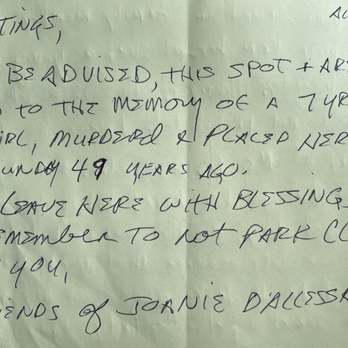 TINGS,
AU
BE ADVISED, THIS SPOT + ARE
TO THE MEMORY OF A 7 YR
IRL, MURDERD & PLACED HER
UNDAY 49 YEARS AGO.
LEAVE HERE WITH BLESSING
EMEMBER TO NOT PARK CL
YOU,
ENDS of JOANIE D'ALLESSA